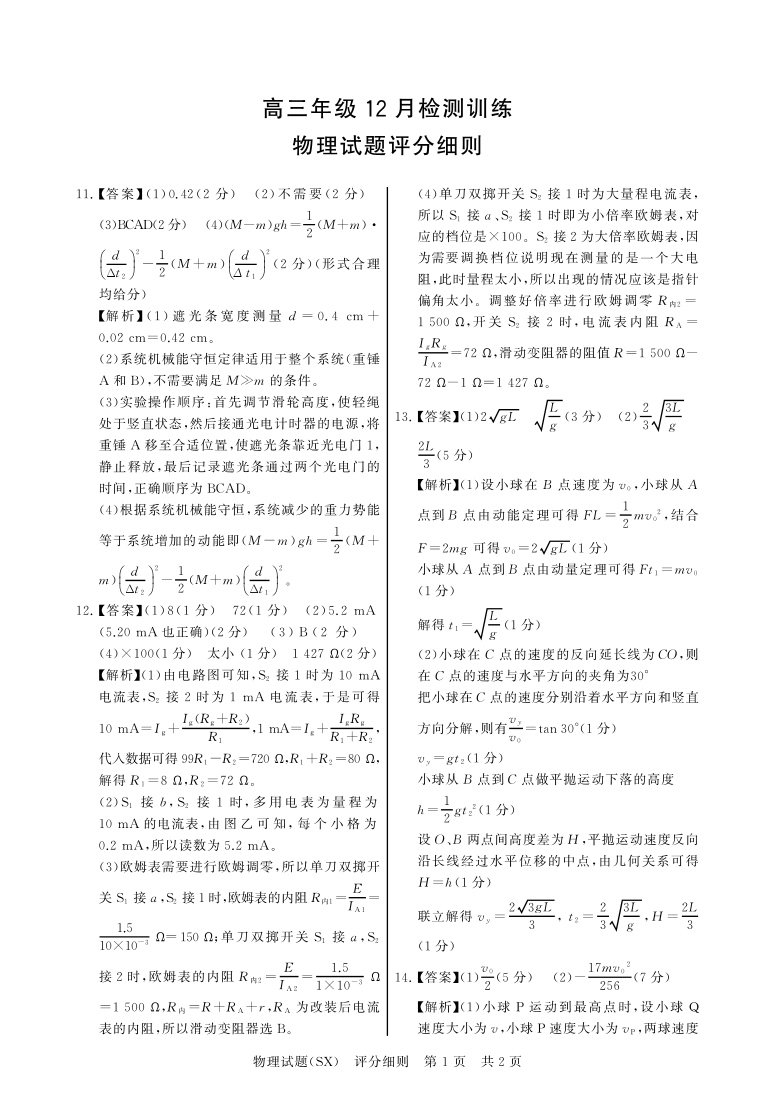 高三年级 12 月检测训练
物理试题评分细则
11.【答案】(1)0.42(2 分) (2)不需要(2 分)
(3)BCAD(2 分) (4)(M−m)gh=1/2(M+m)·
(d/Δt₂)²−1/2(M+m)(d/Δt₁)²(2 分)(形式合理
均给分)
【解析】(1)遮光条宽度测量 d=0.4 cm+
0.02 cm=0.42 cm。
(2)系统机械能守恒定律适用于整个系统(重锤
A 和 B),不需要满足 M≫m 的条件。
(3)实验操作顺序:首先调节滑轮高度,使轻绳
处于竖直状态,然后接通光电计时器的电源,将
重锤 A 移至合适位置,使遮光条靠近光电门 1,
静止释放,最后记录遮光条通过两个光电门的
时间,正确顺序为 BCAD。
(4)根据系统机械能守恒,系统减少的重力势能
等于系统增加的动能即(M−m)gh=1/2(M+
m)(d/Δt₂)²−1/2(M+m)(d/Δt₁)²。
12.【答案】(1)8(1 分) 72(1 分) (2)5.2 mA
(5.20 mA 也正确)(2 分) (3)B(2 分)
(4)×100(1 分) 太小(1 分) 1 427 Ω(2 分)
【解析】(1)由电路图可知,S₂ 接 1 时为 10 mA
电流表,S₂ 接 2 时为 1 mA 电流表,于是可得
10 mA=I_g+I_g(R_g+R₂)/R₁,1 mA=I_g+I_gR_g/(R₁+R₂),
代入数据可得 99R₁−R₂=720 Ω,R₁+R₂=80 Ω,
解得 R₁=8 Ω,R₂=72 Ω。
(2)S₁ 接 b,S₂ 接 1 时,多用电表为量程为
10 mA 的电流表,由图乙可知,每个小格为
0.2 mA,所以读数为 5.2 mA。
(3)欧姆表需要进行欧姆调零,所以单刀双掷开
关 S₁ 接 a,S₂ 接 1 时,欧姆表的内阻 R内1=E/I_A1=
1.5/(10×10⁻³) Ω=150 Ω;单刀双掷开关 S₁ 接 a,S₂
接 2 时,欧姆表的内阻 R内2=E/I_A2=1.5/(1×10⁻³) Ω
=1 500 Ω,R内=R+R_A+r,R_A 为改装后电流
表的内阻,所以滑动变阻器选 B。
(4)单刀双掷开关 S₂ 接 1 时为大量程电流表,
所以 S₁ 接 a、S₂ 接 1 时即为小倍率欧姆表,对
应的档位是×100。S₂ 接 2 为大倍率欧姆表,因
为需要调换档位说明现在测量的是一个大电
阻,此时量程太小,所以出现的情况应该是指针
偏角太小。调整好倍率进行欧姆调零 R内2=
1 500 Ω,开关 S₂ 接 2 时,电流表内阻 R_A=
I_gR_g/I_A2=72 Ω,滑动变阻器的阻值 R=1 500 Ω−
72 Ω−1 Ω=1 427 Ω。
13.【答案】(1)2√(gL) √(L/g)(3 分) (2)2/3√(3L/g)
2L/3(5 分)
【解析】(1)设小球在 B 点速度为 v₀,小球从 A
点到 B 点由动能定理可得 FL=1/2mv₀²,结合
F=2mg 可得 v₀=2√(gL)(1 分)
小球从 A 点到 B 点由动量定理可得 Ft₁=mv₀
(1 分)
解得 t₁=√(L/g)(1 分)
(2)小球在 C 点的速度的反向延长线为 CO,则
在 C 点的速度与水平方向的夹角为30°
把小球在 C 点的速度分别沿着水平方向和竖直
方向分解,则有v_y/v₀=tan 30°(1 分)
v_y=gt₂(1 分)
小球从 B 点到 C 点做平抛运动下落的高度
h=1/2gt₂²(1 分)
设 O、B 两点间高度差为 H,平抛运动速度反向
沿长线经过水平位移的中点,由几何关系可得
H=h(1 分)
联立解得 v_y=2√(3gL)/3, t₂=2/3√(3L/g),H=2L/3
(1 分)
14.【答案】(1)v₀/2(5 分) (2)−17mv₀²/256(7 分)
【解析】(1)小球 P 运动到最高点时,设小球 Q
速度大小为 v,小球 P 速度大小为 v_P,两球速度
物理试题(SX) 评分细则 第 1 页 共 2 页